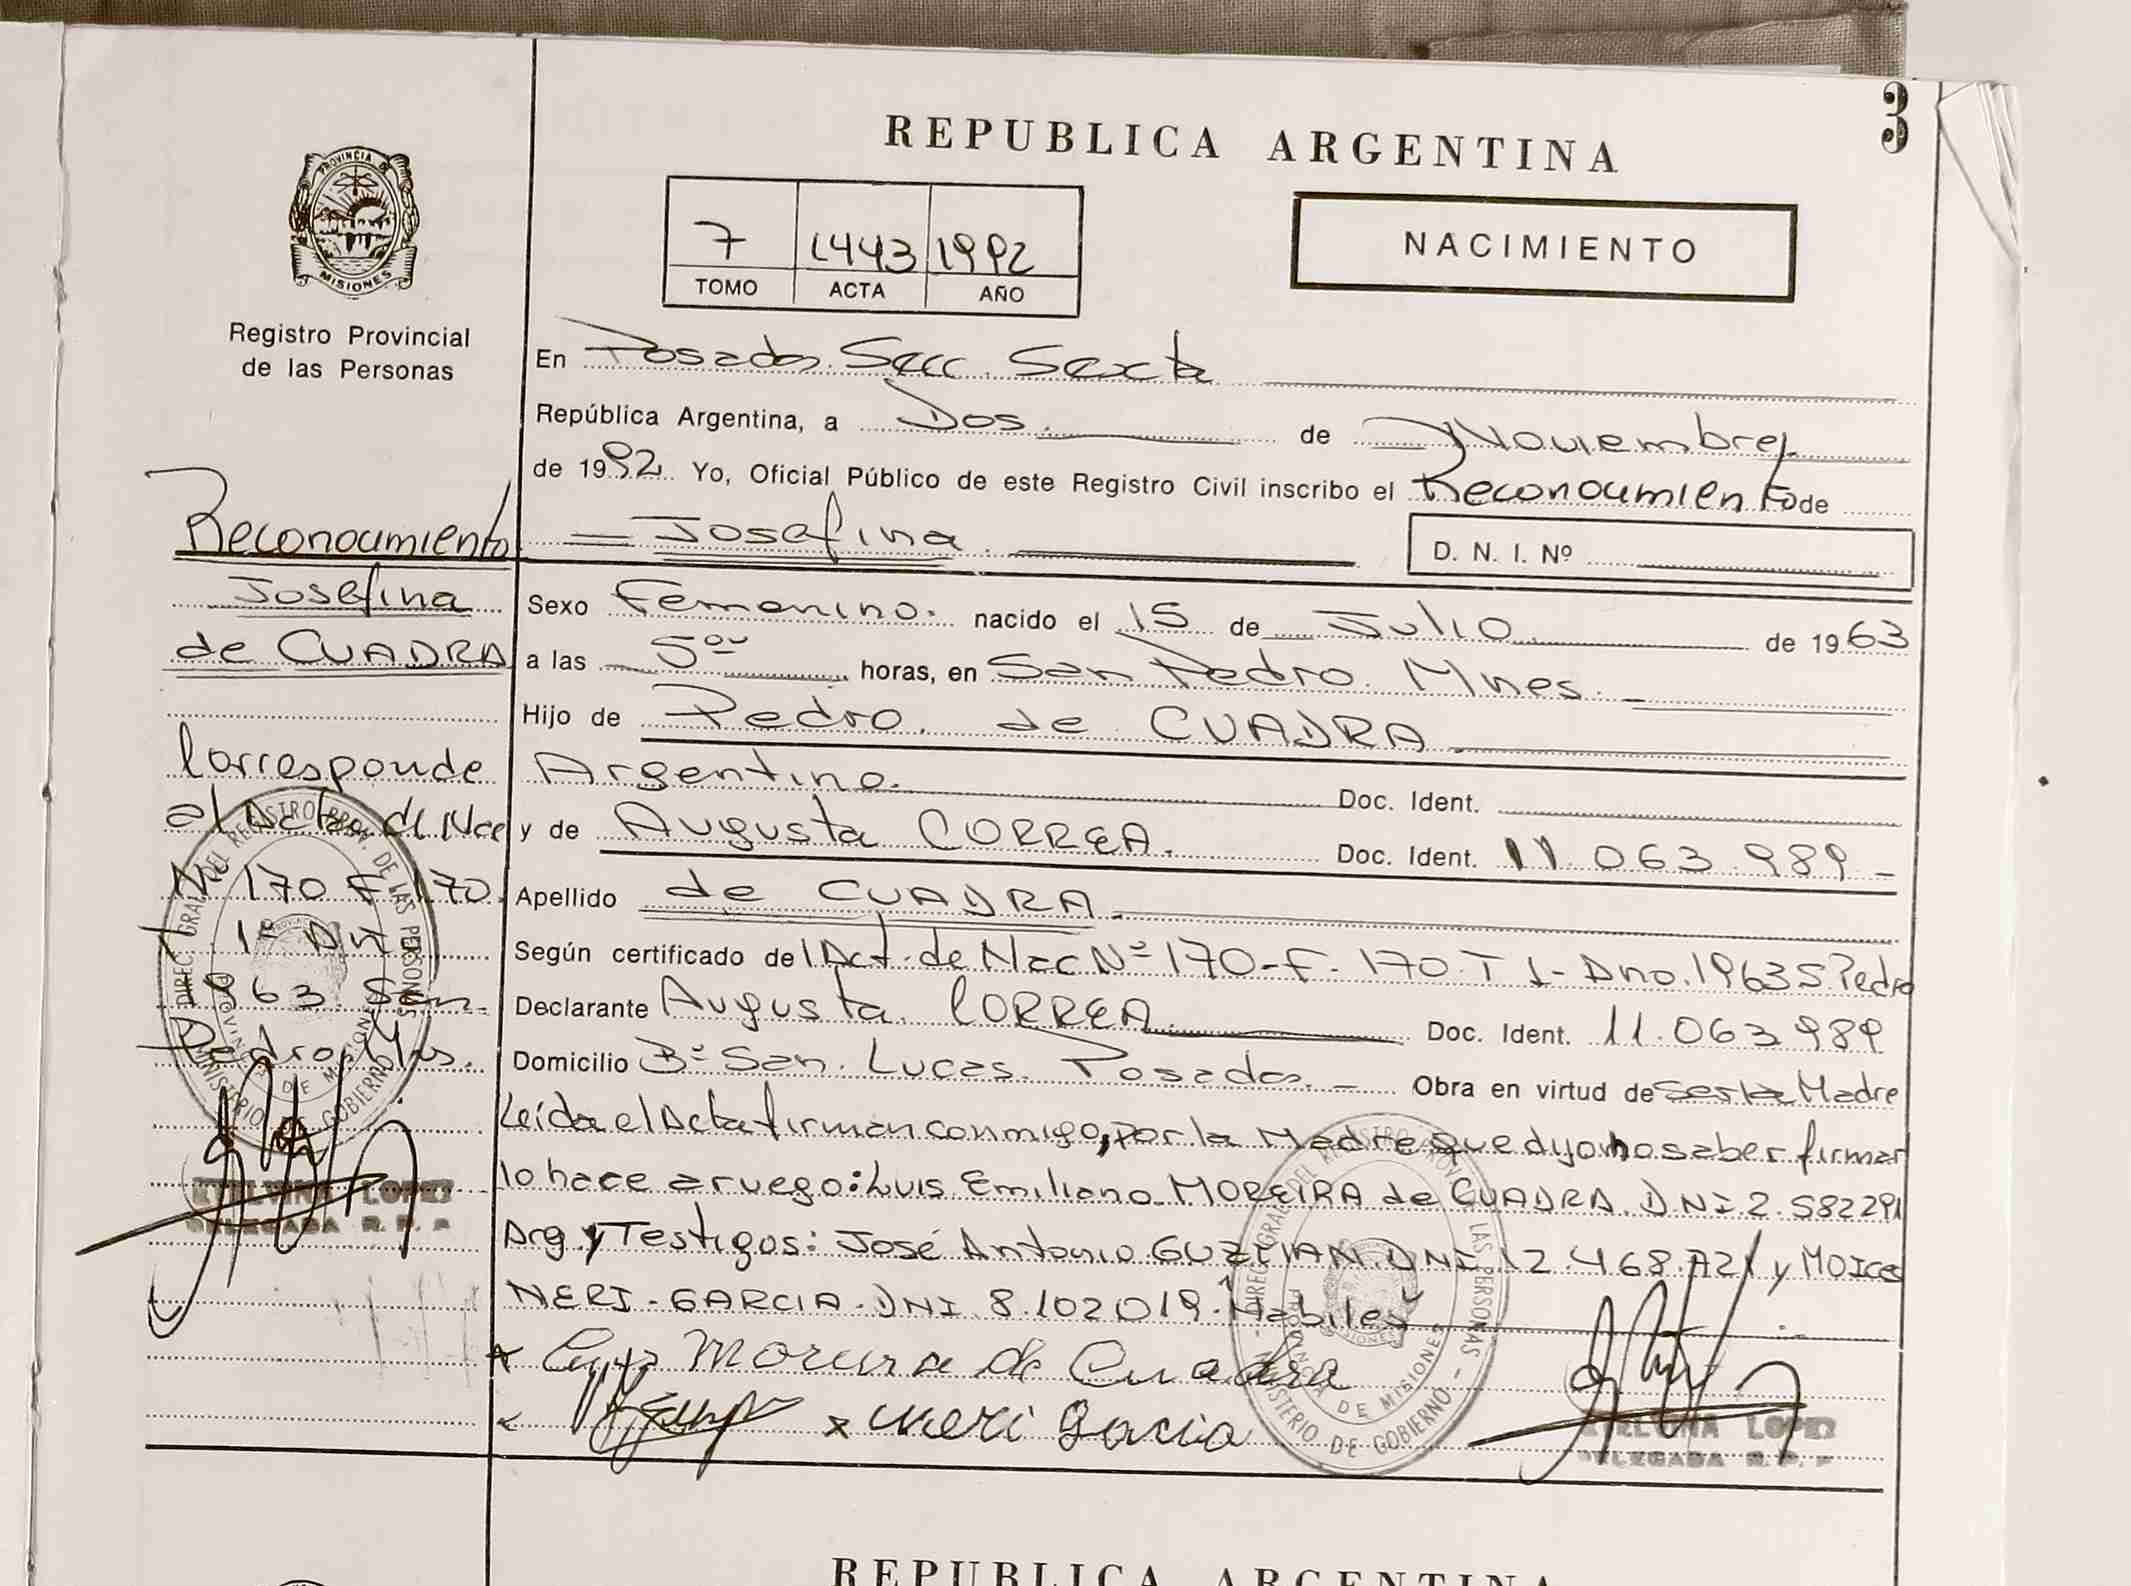 3
REPUBLICA ARGENTINA
PROVINCIA DE
MISIONES
Registro Provincial
de las Personas
7 1443 1992
TOMO ACTA AÑO
NACIMIENTO
En Posadas Secc. Sexta
República Argentina, a Dos de Noviembre
de 1992 Yo, Oficial Público de este Registro Civil inscribo el Reconocimiento de
Josefina
D. N. I. Nº
Sexo Femenino. nacido el 15 de Julio de 1963
a las 5 horas, en San Pedro. Mnes.
Hijo de Pedro. de CUADRA
Argentino. Doc. Ident.
y de Augusta CORREA. Doc. Ident. 11.063.989-
Apellido de CUADRA.
Según certificado del Act. de Nac Nº 170-F. 170. T 1- Ano. 1963 S Pedro
Declarante Augusta CORREA Doc. Ident. 11.063989
Domicilio Bº San. Lucas. Posadas. Obra en virtud de Madre
Leída el Acta firman conmigo, por la Madre que dijo no saber firmar
lo hace a ruego: Luis Emiliano MOREIRA de CUADRA. DNI
Arg y Testigos: José Antonio GUZMAN. DNI y
NERI-GARCIA-DNI 8.102019. Habiles
Moreira de Cuadra
x Neri Garcia
Reconocimiento
Josefina
de CUADRA
Corresponde
al Acta de Nac
Nº 170 F 170
1963 San
Pedro
DIREC. GRAL. DEL REGISTRO PROV. DE LAS PERSONAS
PROVINCIA DE MISIONES
MINISTERIO DE GOBIERNO
LOPEZ
DELEGADA R. P.
DIREC. GRAL. DEL REGISTRO PROV. DE LAS PERSONAS
PROVINCIA DE MISIONES
MINISTERIO DE GOBIERNO
LOPEZ
DELEGADA R. P.
REPUBLICA ARGENTINA